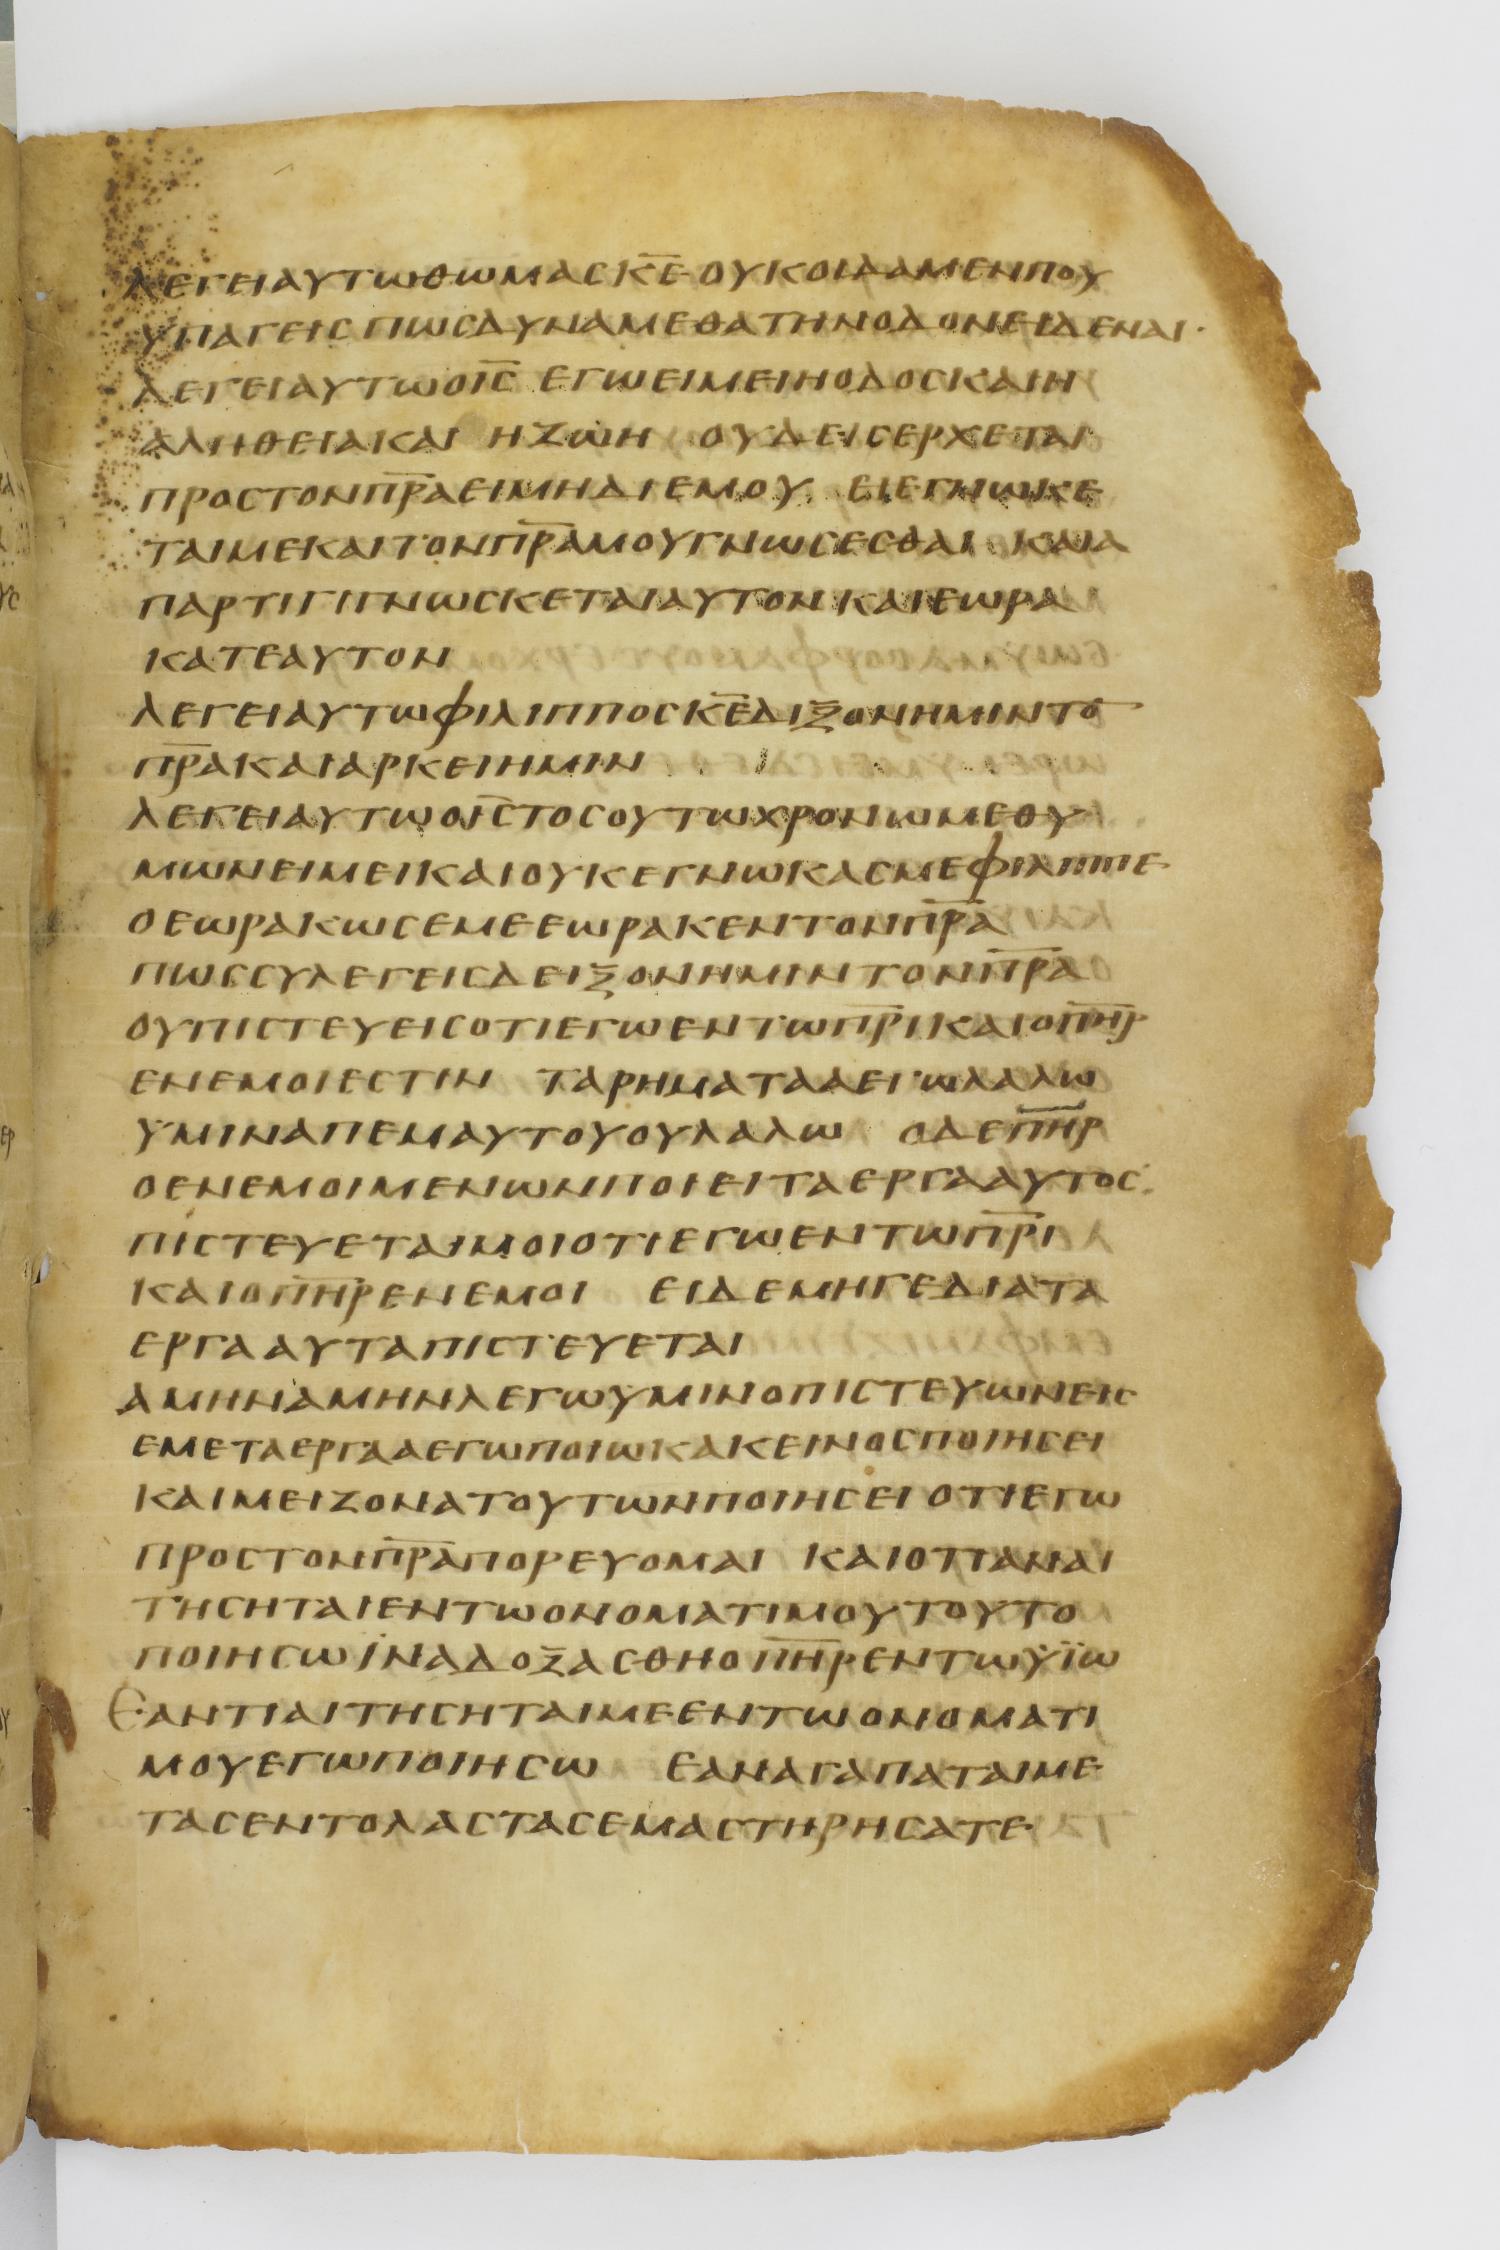 ΛΕΓΕΙΑΥΤΩΘΩΜΑΣΚ̅Ε̅ ΟΥΚΟΙΔΑΜΕΝΠΟΥ
ΥΠΑΓΕΙΣ ΠΩΣΔΥΝΑΜΕΘΑΤΗΝΟΔΟΝΕΙΔΕΝΑΙ·
ΛΕΓΕΙΑΥΤΩΟΙ̅Σ̅ ΕΓΩΕΙΜΕΙΗΟΔΟΣΚΑΙΗ
ΑΛΗΘΕΙΑΚΑΙ ΗΖΩΗ ΟΥΔΕΙΣΕΡΧΕΤΑΙ
ΠΡΟΣΤΟΝΠ̅Ρ̅Α̅ΕΙΜΗΔΙΕΜΟΥ ΕΙΕΓΝΩΚΕ
ΤΑΙΜΕΚΑΙΤΟΝΠ̅Ρ̅Α̅ΜΟΥΓΝΩΣΕΣΘΑΙ ΚΑΙΑ
ΠΑΡΤΙΓΙΓΝΩΣΚΕΤΑΙΑΥΤΟΝΚΑΙΕΩΡΑ
ΚΑΤΕΑΥΤΟΝ
ΛΕΓΕΙΑΥΤΩΦΙΛΙΠΠΟΣΚ̅Ε̅ΔΙΞΟΝΗΜΙΝΤΟ̅
Π̅Ρ̅Α̅ΚΑΙΑΡΚΕΙΗΜΙΝ
ΛΕΓΕΙΑΥΤΩΟΙ̅Σ̅ΤΟΣΟΥΤΩΧΡΟΝΩΜΕΘΥ
ΜΩΝΕΙΜΕΙΚΑΙΟΥΚΕΓΝΩΚΑΣΜΕΦΙΛΙΠΠΕ
ΟΕΩΡΑΚΩΣΕΜΕΕΩΡΑΚΕΝΤΟΝΠ̅Ρ̅Α̅
ΠΩΣΣΥΛΕΓΕΙΣΔΕΙΞΟΝΗΜΙΝΤΟΝΠ̅Ρ̅Α̅
ΟΥΠΙΣΤΕΥΕΙΣΟΤΙΕΓΩΕΝΤΩΠ̅Ρ̅Ι̅ΚΑΙΟΠ̅Η̅Ρ̅
ΕΝΕΜΟΙΕΣΤΙΝ ΤΑΡΗΜΑΤΑΑΕΓΩΛΑΛΩ
ΥΜΙΝΑΠΕΜΑΥΤΟΥΟΥΛΑΛΩ ΟΔΕΠ̅Η̅Ρ̅
ΟΕΝΕΜΟΙΜΕΝΩΝΠΟΙΕΙΤΑΕΡΓΑΑΥΤΟΣ·
ΠΙΣΤΕΥΕΤΑΙΜΟΙΟΤΙΕΓΩΕΝΤΩΠ̅Ρ̅Ι̅
ΚΑΙΟΠ̅Η̅Ρ̅ΕΝΕΜΟΙ ΕΙΔΕΜΗΓΕΔΙΑΤΑ
ΕΡΓΑΑΥΤΑΠΙΣΤΕΥΕΤΑΙ
ΑΜΗΝΑΜΗΝΛΕΓΩΥΜΙΝΟΠΙΣΤΕΥΩΝΕΙΣ
ΕΜΕΤΑΕΡΓΑΑΕΓΩΠΟΙΩΚΑΚΕΙΝΟΣΠΟΙΗΣΕΙ
ΚΑΙΜΕΙΖΟΝΑΤΟΥΤΩΝΠΟΙΗΣΕΙ ΟΤΙΕΓΩ
ΠΡΟΣΤΟΝΠ̅Ρ̅Α̅ΠΟΡΕΥΟΜΑΙ ΚΑΙΟΤΙΑΝΑΙ
ΤΗΣΗΤΑΙΕΝΤΩΟΝΟΜΑΤΙΜΟΥΤΟΥΤΟ
ΠΟΙΗΣΩΪΝΑΔΟΞΑΣΘΗΟΠ̅Η̅Ρ̅ΕΝΤΩΥΪΩ
ΕΑΝΤΙΑΙΤΗΣΗΤΑΙΜΕΕΝΤΩΟΝΟΜΑΤΙ
ΜΟΥΕΓΩΠΟΙΗΣΩ ΕΑΝΑΓΑΠΑΤΑΙΜΕ
ΤΑΣΕΝΤΟΛΑΣΤΑΣΕΜΑΣΤΗΡΗΣΑΤΕ·